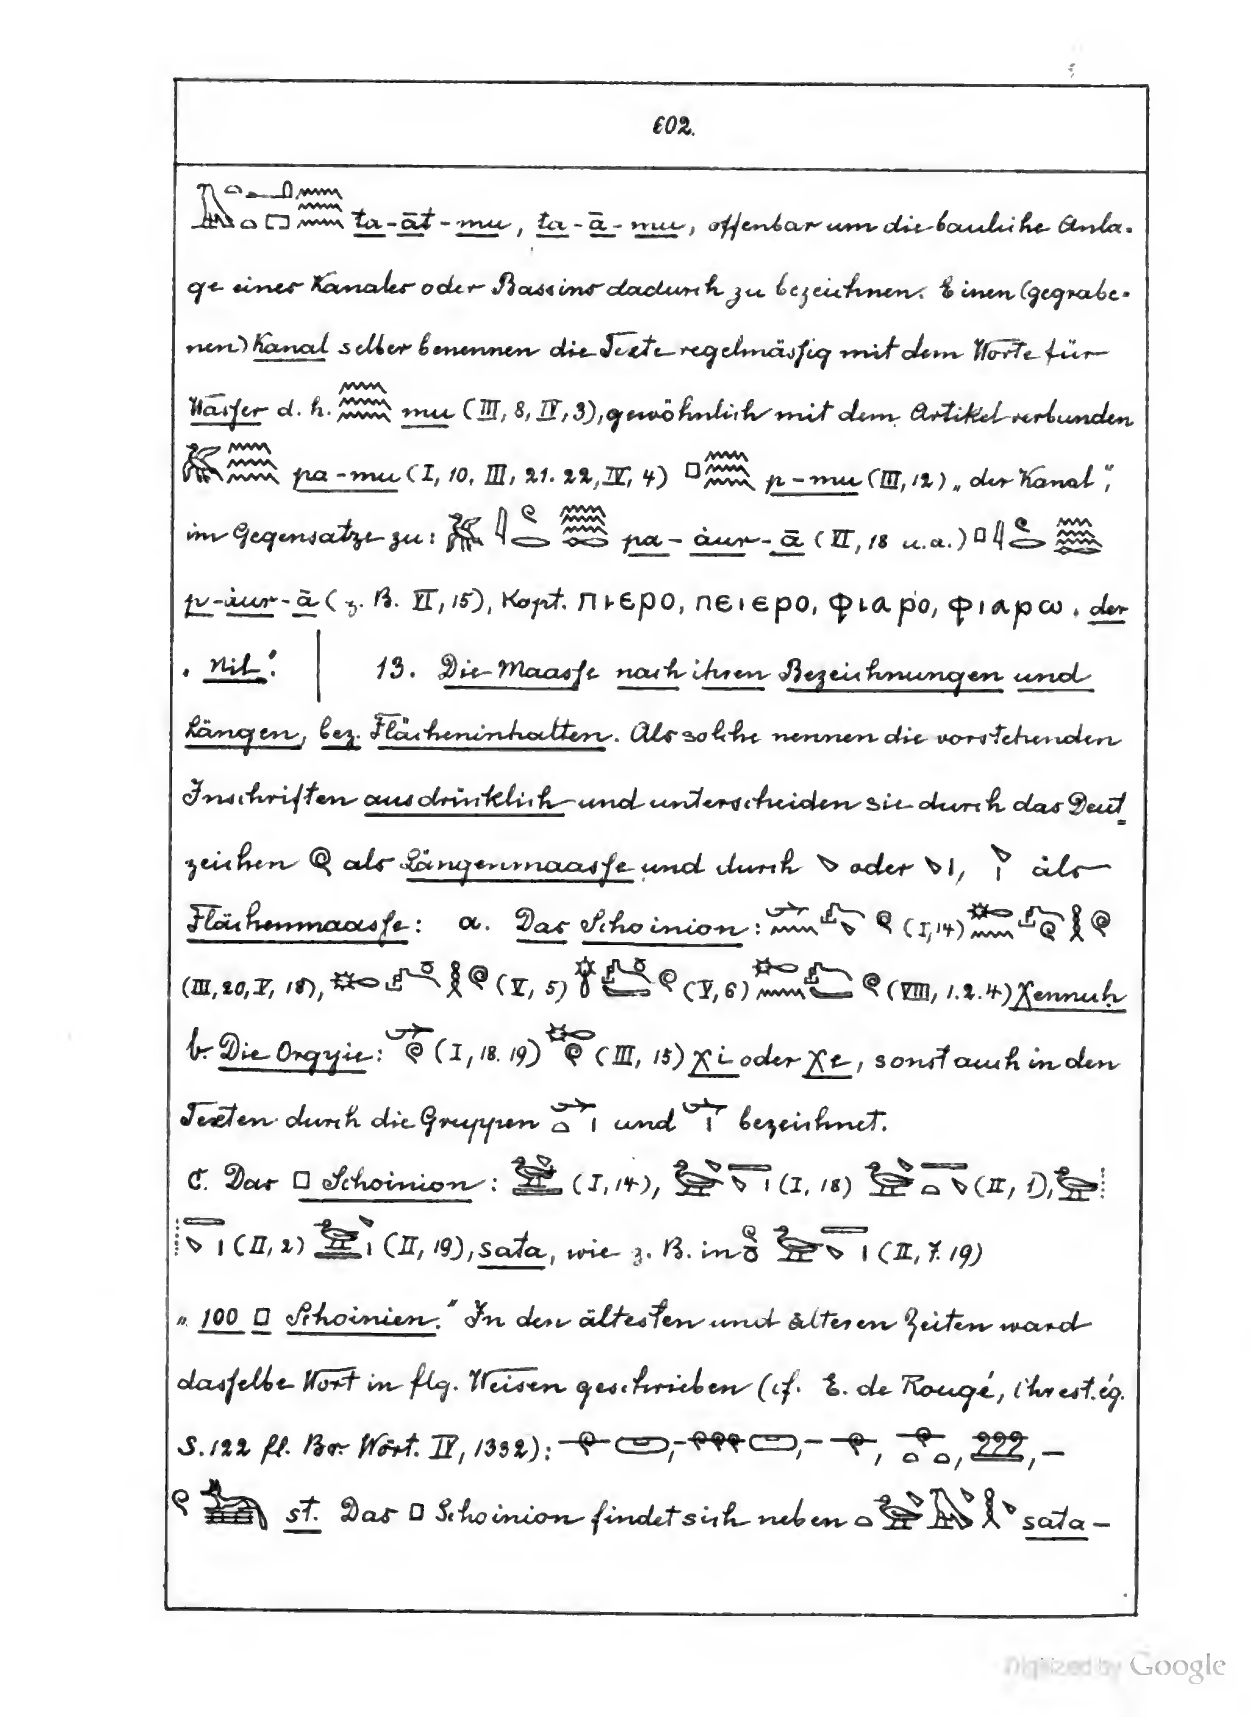 602.
ta-āt-mu, ta-ā-mu, offenbar um die bauliche Anla-
ge eines Kanales oder Bassins dadurch zu bezeichnen. Einen (gegrabe-
nen) Kanal selber benennen die Texte regelmässig mit dem Worte für
Wasser d. h. mu (III, 8, IV, 3), gewöhnlich mit dem Artikel verbunden
pa-mu (I, 10, III, 21. 22, IV, 4) p-mu (III, 12) „der Kanal",
im Gegensatze zu: pa-àur-ā (VI, 18 u.a.)
p-àur-ā (z. B. VI, 15), Kopt. ⲡⲓⲉⲣⲟ, ⲡⲉⲓⲉⲣⲟ, ⲫⲓⲁⲣⲟ, ⲫⲓⲁⲣⲱ, der
Nil". 13. Die Maasse nach ihren Bezeichnungen und
Längen, bez. Flächeninhalten. Als solche nennen die vorstehenden
Inschriften ausdrücklich und unterscheiden sie durch das Deut
zeichen 𓍢 als Längenmaasse und durch oder als
Flächenmaasse: a. Das Schoinion: (I, 14)
(III, 20, V, 18), (V, 5) (V, 6) (VIII, 1. 2. 4) χennuh
b. Die Orgyie: (I, 18. 19) (III, 15) χi oder χe, sonst auch in den
Texten durch die Gruppen und bezeichnet.
C. Das □ Schoinion: (I, 14), (I, 18) (II, 1),
(II, 2) (II, 19), sata, wie z. B. in (II, 7. 19)
„100 □ Schoinien." In den ältesten und älteren Zeiten ward
dasselbe Wort in flg. Weisen geschrieben (cf. E. de Rougé, Chrest. ég.
S. 122 fl. Br. Wört. IV, 1332):
st. Das □ Schoinion findet sich neben sata-
Digitized by Google